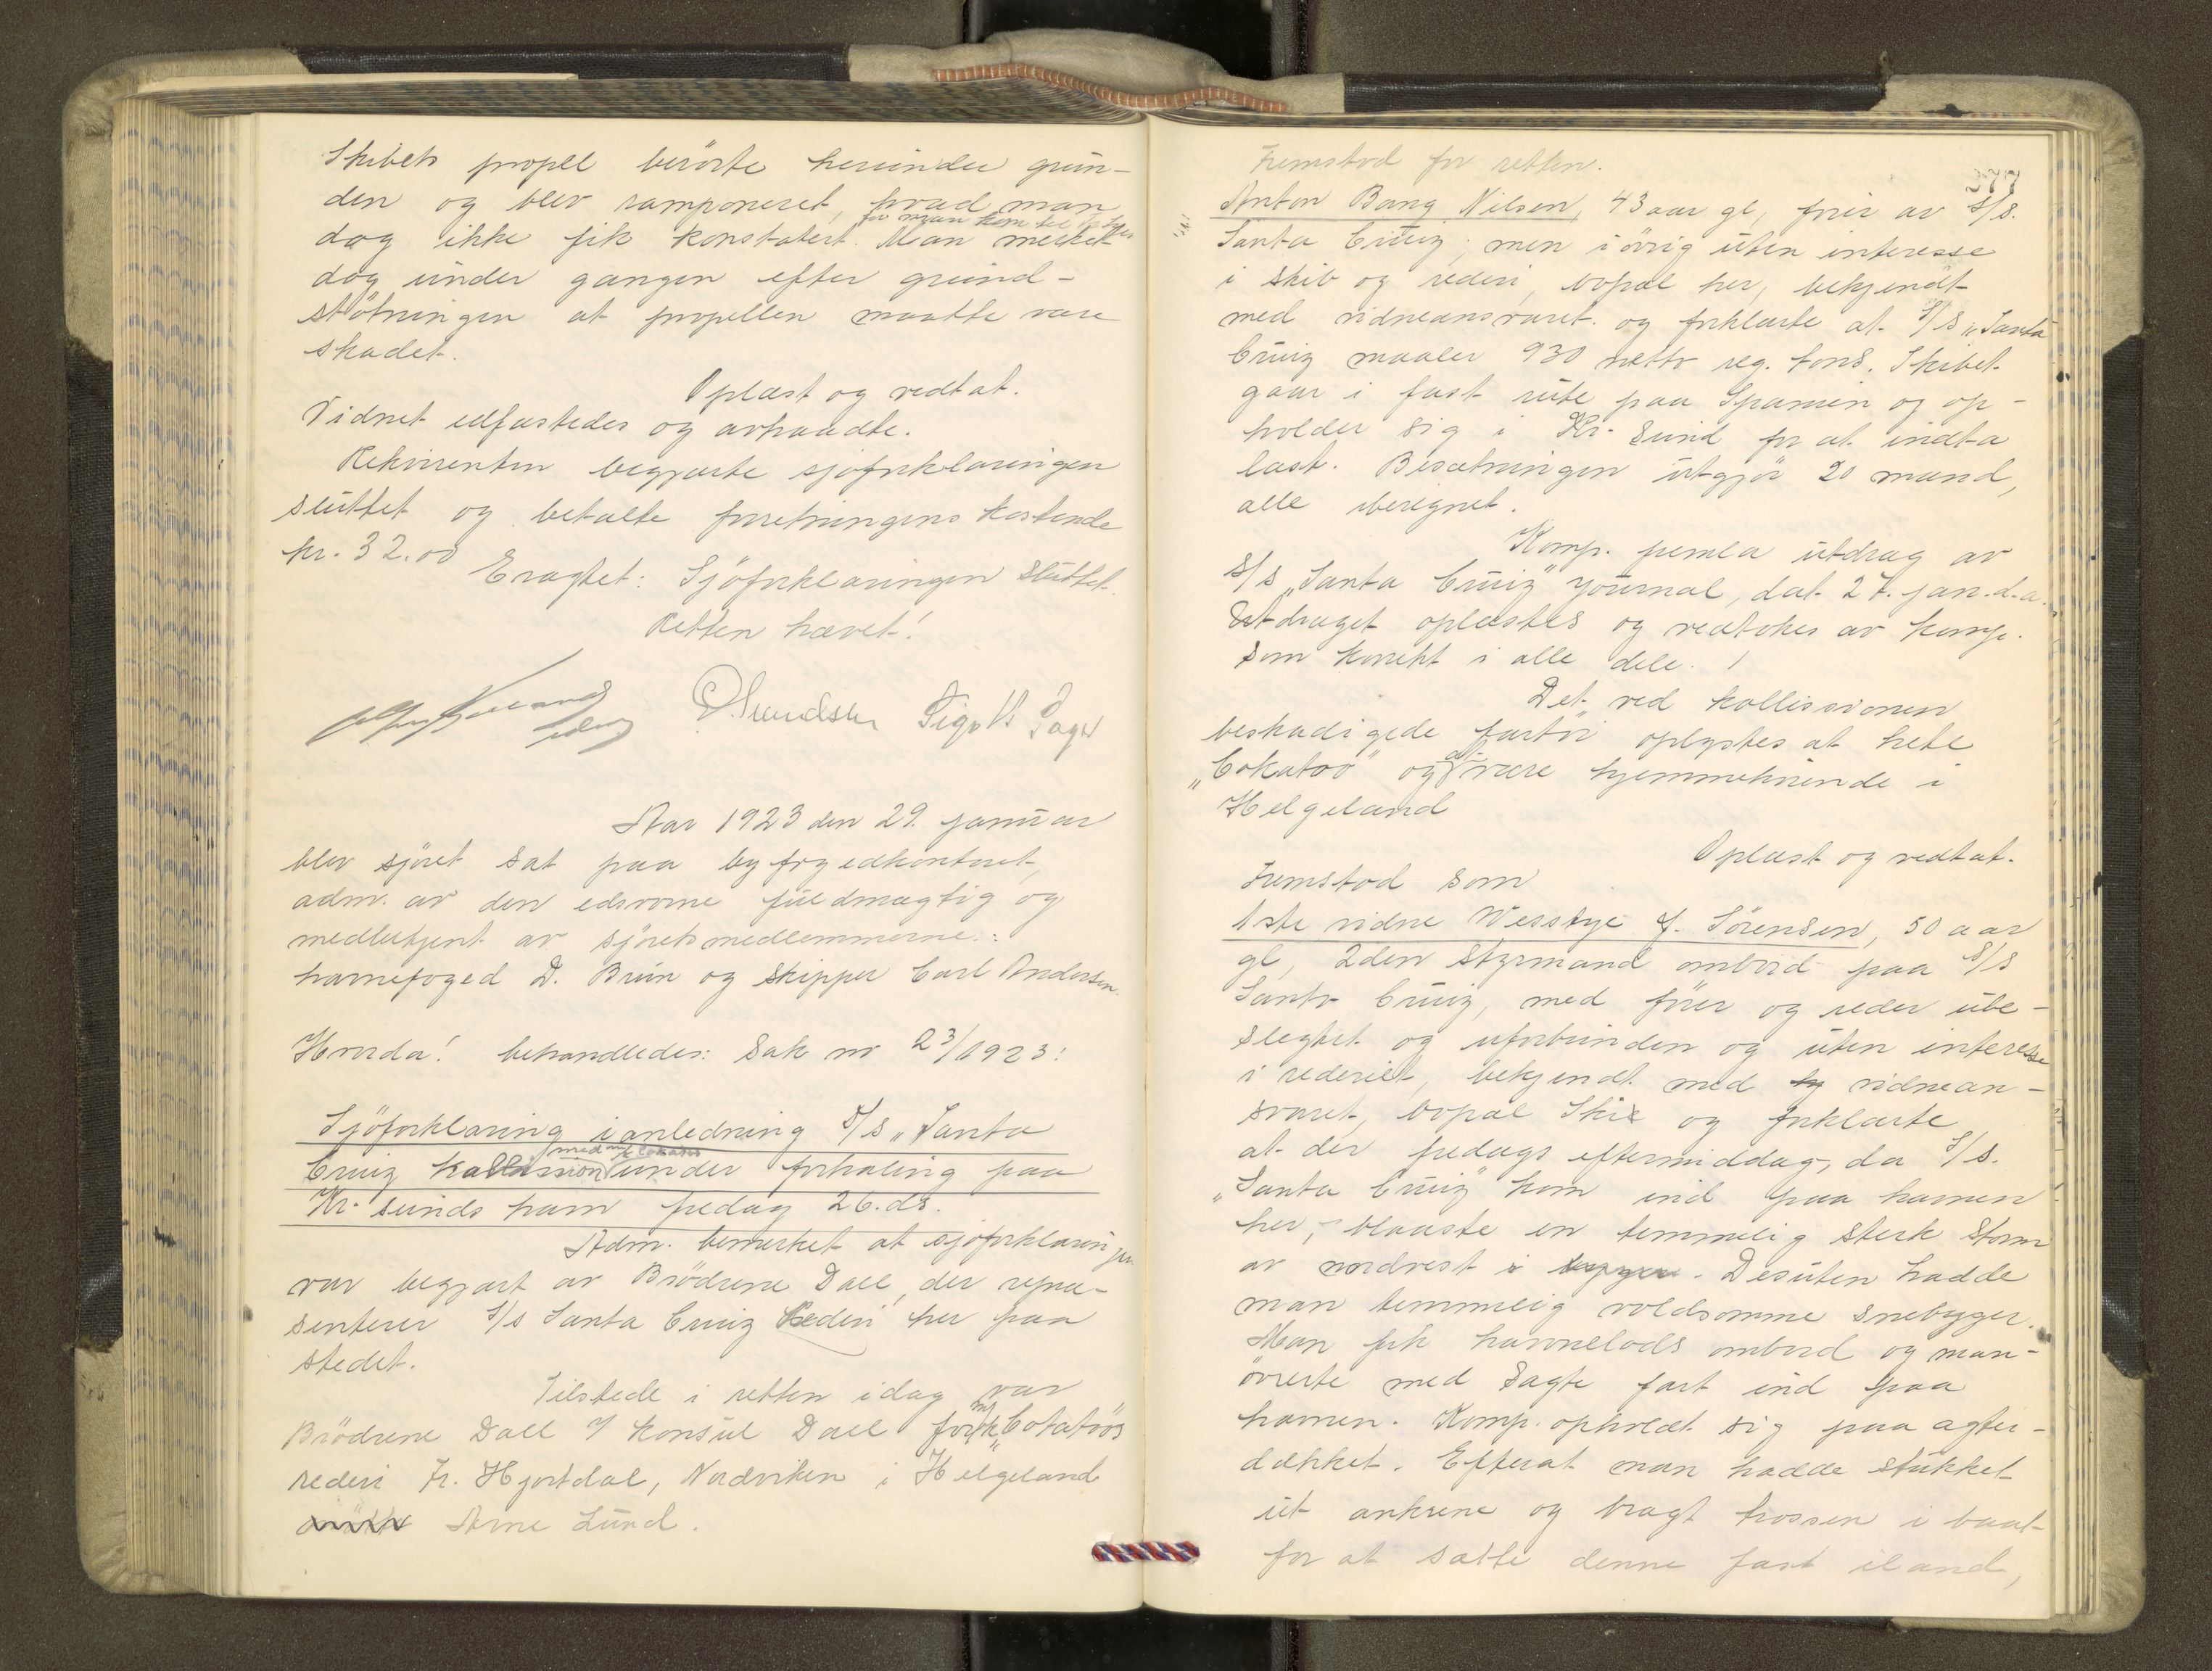 Skibets propel berörte herunder grun-
den og blev ramponeret, hvad man
for man kom til
dog ikke fik konstatert. Man merket
dog under gangen efter grund-
stötningen at propellen maatte være
skadet.
Oplæst og vedtat.
Vidnet edfæstedes og avhaadte.
Rekvirenten begjærte sjöforklaringen
sluttet og betalte forretningens kostende
kr. 32.00
Eragtet: Sjöforklaringen sluttet.
Retten hævet!
O. Sundsbø Sigv. B.
Aar 1923 den 29. januar
blev sjöret sat paa byfogedkontoret,
adm. av den edsvorne fuldmægtig og
medbetjent av sjöretsmedlemmerne:
havnefoged D. Bruun og skipper Carl Andersen.
Hvorda! behandledes: Sak nr 23/1923:
Sjöforklaring i anledning S/S „Santa
med m/k Cokatoo
Cruiz kollission under forhaling paa
Kr. sunds havn fredag 26. ds.
Adm. bemerket at sjöforklaringen
var begjært av Brödrene Dall, der repræ-
senterer S/S Santa Cruiz Rederi her paa
stedet.
Tilstede i retten idag var
Brödrene Dall v/ Konsul Dall for m/k „Cokatoos
rederi Fr. Hjortdal, Nordviken i Helgeland
Arne Lund.
377
Fremstod for retten.
Anton Bang Nilsen, 43 aar gl, förer av S/S.
Santa Cruiz; men i övrig uten interesse
i skib og rederi, bopæl her, bekjendt
med vidneansvaret og forklarte at S/S „Santa
Cruiz maaler 930 netto reg. tons. Skibet
gaar i fast rute paa Spanien og op-
holder sig i Kr. sund for at indta
last. Besætningen utgjör 20 mand,
alle iberegnet.
Komp. fremla utdrag av
S/S „Santa Cruiz" journal, dat. 27. jan. d.a.
Utdraget oplæstes og vedtokes av komp.
som korrekt i alle dele.
Det ved kollissionen
beskadigede fartöi oplystes at hete
„Cokatoo" og at være hjemmehörende i
Helgeland
Oplæst og vedtat.
Fremstod som
1ste vidne Wesstye J. Sörensen, 50 aar
gl, 2den styrmand ombord paa S/S
Santa Cruiz, med förer og reder ube-
slegtet og uforbunden og uten interesse
i rederiet, bekjendt med vidnean-
svaret, bopæl Ski og forklarte
at der fredags eftermiddag, da S/S.
„Santa Cruiz" kom ind paa havnen
her, blaaste en temmelig sterk storm
av nordvest i byger. Desuten hadde
man temmelig voldsomme snebyger.
Man fik havnelods ombord og man-
övrerte med sagte fart ind paa
havnen. Komp. opholdt sig paa agter-
dækket. Efterat man hadde stukket
ut ankrene og bragt trossen i baat
for at sætte denne fast iland,